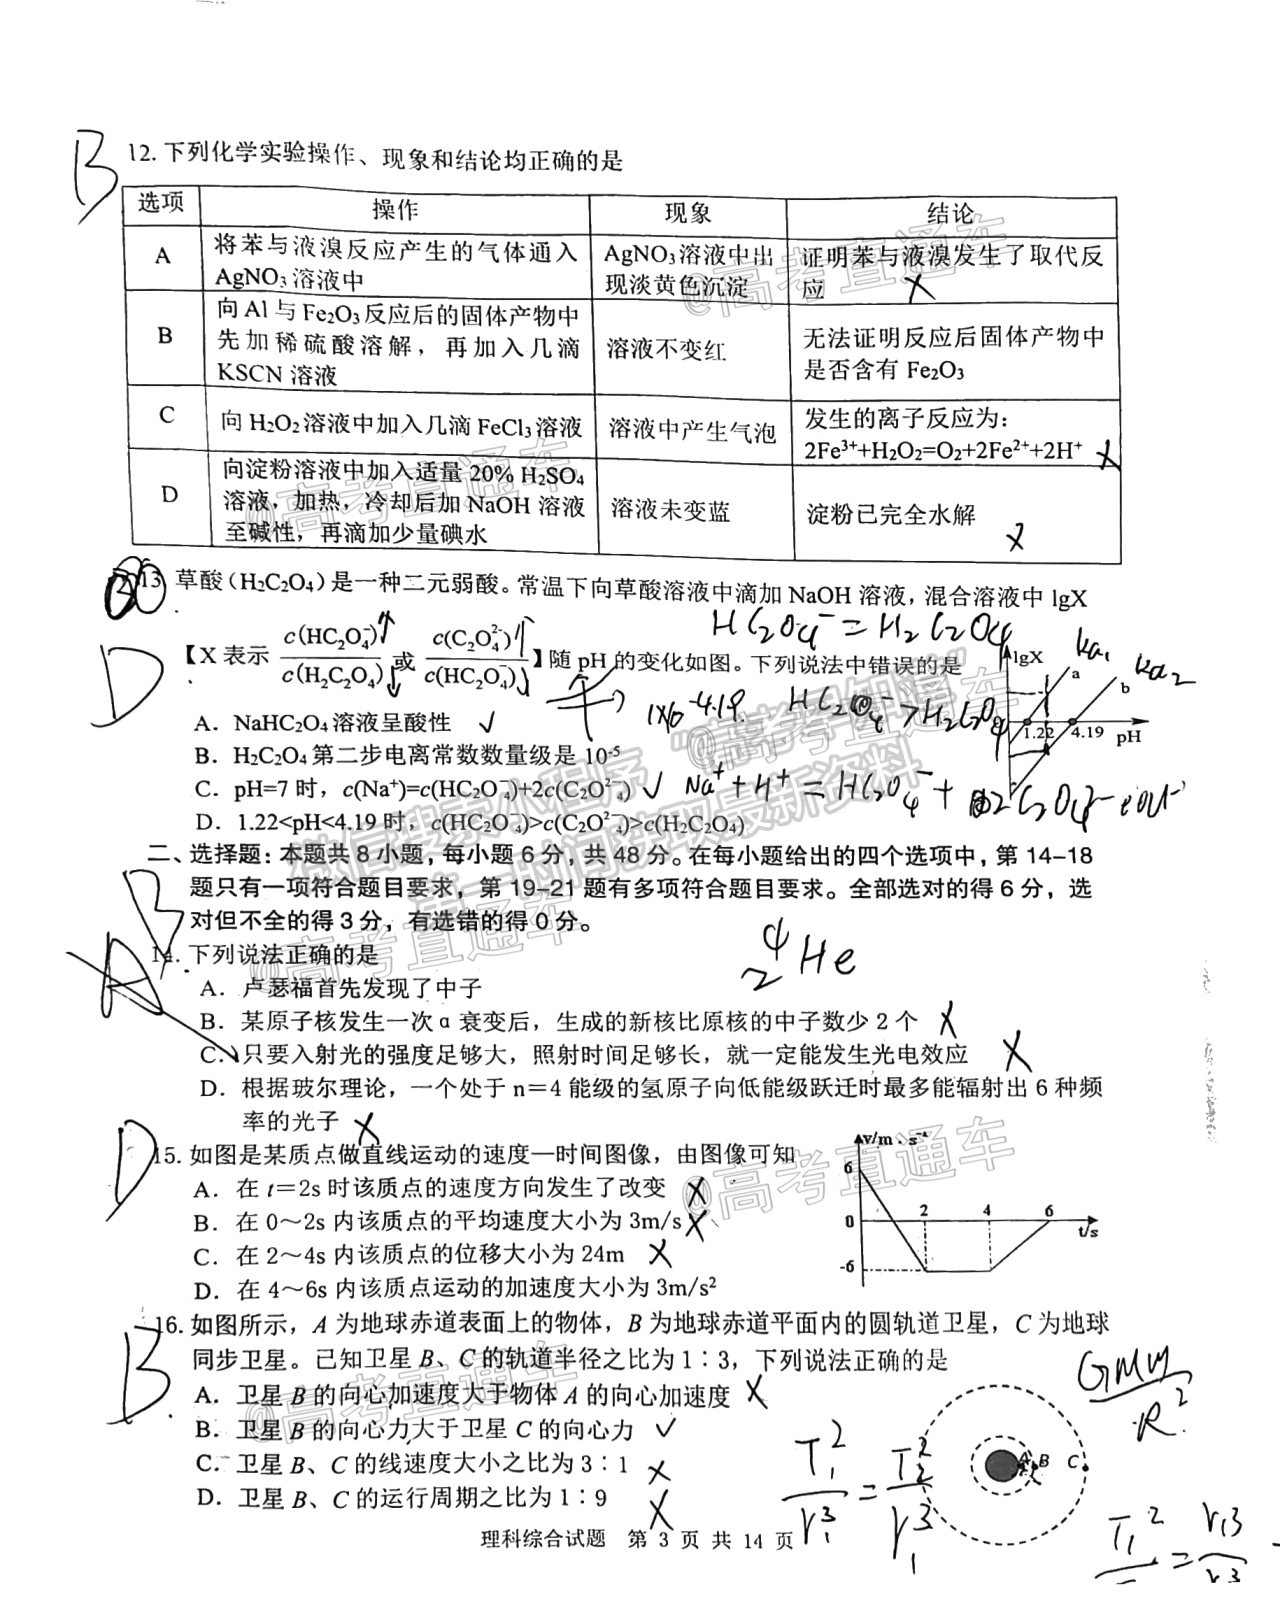 B
12. 下列化学实验操作、现象和结论均正确的是
选项 操作 现象 结论
A 将苯与液溴反应产生的气体通入AgNO₃溶液中 AgNO₃溶液中出现淡黄色沉淀 证明苯与液溴发生了取代反应
B 向 Al 与 Fe₂O₃ 反应后的固体产物中先加稀硫酸溶解，再加入几滴KSCN 溶液 溶液不变红 无法证明反应后固体产物中是否含有 Fe₂O₃
C 向 H₂O₂ 溶液中加入几滴 FeCl₃ 溶液 溶液中产生气泡 发生的离子反应为：2Fe³⁺+H₂O₂=O₂+2Fe²⁺+2H⁺
D 向淀粉溶液中加入适量 20% H₂SO₄溶液，加热，冷却后加 NaOH 溶液至碱性，再滴加少量碘水 溶液未变蓝 淀粉已完全水解
13. 草酸（H₂C₂O₄）是一种二元弱酸。常温下向草酸溶液中滴加 NaOH 溶液，混合溶液中 lgX
HC₂O₄⁻ = H₂C₂O₄
【X 表示 c(HC₂O₄⁻)/c(H₂C₂O₄) 或 c(C₂O₄²⁻)/c(HC₂O₄⁻)】随 pH 的变化如图。下列说法中错误的是
D
lgX a b 0 1.22 4.19 pH
ka₁ ka₂
A．NaHC₂O₄ 溶液呈酸性
1×10⁻⁴·¹⁹ HC₂O₄⁻ > H₂C₂O₄
B．H₂C₂O₄ 第二步电离常数数量级是 10⁻⁵
C．pH=7 时，c(Na⁺)=c(HC₂O₄⁻)+2c(C₂O₄²⁻)
Na⁺ + H⁺ = HC₂O₄⁻ + 2C₂O₄²⁻ + OH⁻
D．1.22<pH<4.19 时，c(HC₂O₄⁻)>c(C₂O₄²⁻)>c(H₂C₂O₄)
二、选择题：本题共 8 小题，每小题 6 分，共 48 分。在每小题给出的四个选项中，第 14-18
题只有一项符合题目要求，第 19-21 题有多项符合题目要求。全部选对的得 6 分，选
对但不全的得 3 分，有选错的得 0 分。
B
⁴₂He
14. 下列说法正确的是
A．卢瑟福首先发现了中子
B．某原子核发生一次 α 衰变后，生成的新核比原核的中子数少 2 个
C．只要入射光的强度足够大，照射时间足够长，就一定能发生光电效应
D．根据玻尔理论，一个处于 n＝4 能级的氢原子向低能级跃迁时最多能辐射出 6 种频
率的光子
D
15. 如图是某质点做直线运动的速度—时间图像，由图像可知
A．在 t＝2s 时该质点的速度方向发生了改变
B．在 0～2s 内该质点的平均速度大小为 3m/s
C．在 2～4s 内该质点的位移大小为 24m
D．在 4～6s 内该质点运动的加速度大小为 3m/s²
v/m·s⁻¹ 6 0 -6 2 4 6 t/s
B
16. 如图所示，A 为地球赤道表面上的物体，B 为地球赤道平面内的圆轨道卫星，C 为地球
同步卫星。已知卫星 B、C 的轨道半径之比为 1：3，下列说法正确的是
A．卫星 B 的向心加速度大于物体 A 的向心加速度
B．卫星 B 的向心力大于卫星 C 的向心力
C．卫星 B、C 的线速度大小之比为 3：1
D．卫星 B、C 的运行周期之比为 1：9
GMm/R²
A B C
T₁²/r₁³ = T₂²/r₁³
理科综合试题 第 3 页 共 14 页
@高考直通车
@高考直通车
微信搜索小程序“高考早知道”
第一时间获取最新资料
@高考直通车
@高考直通车
@高考直通车
@高考直通车